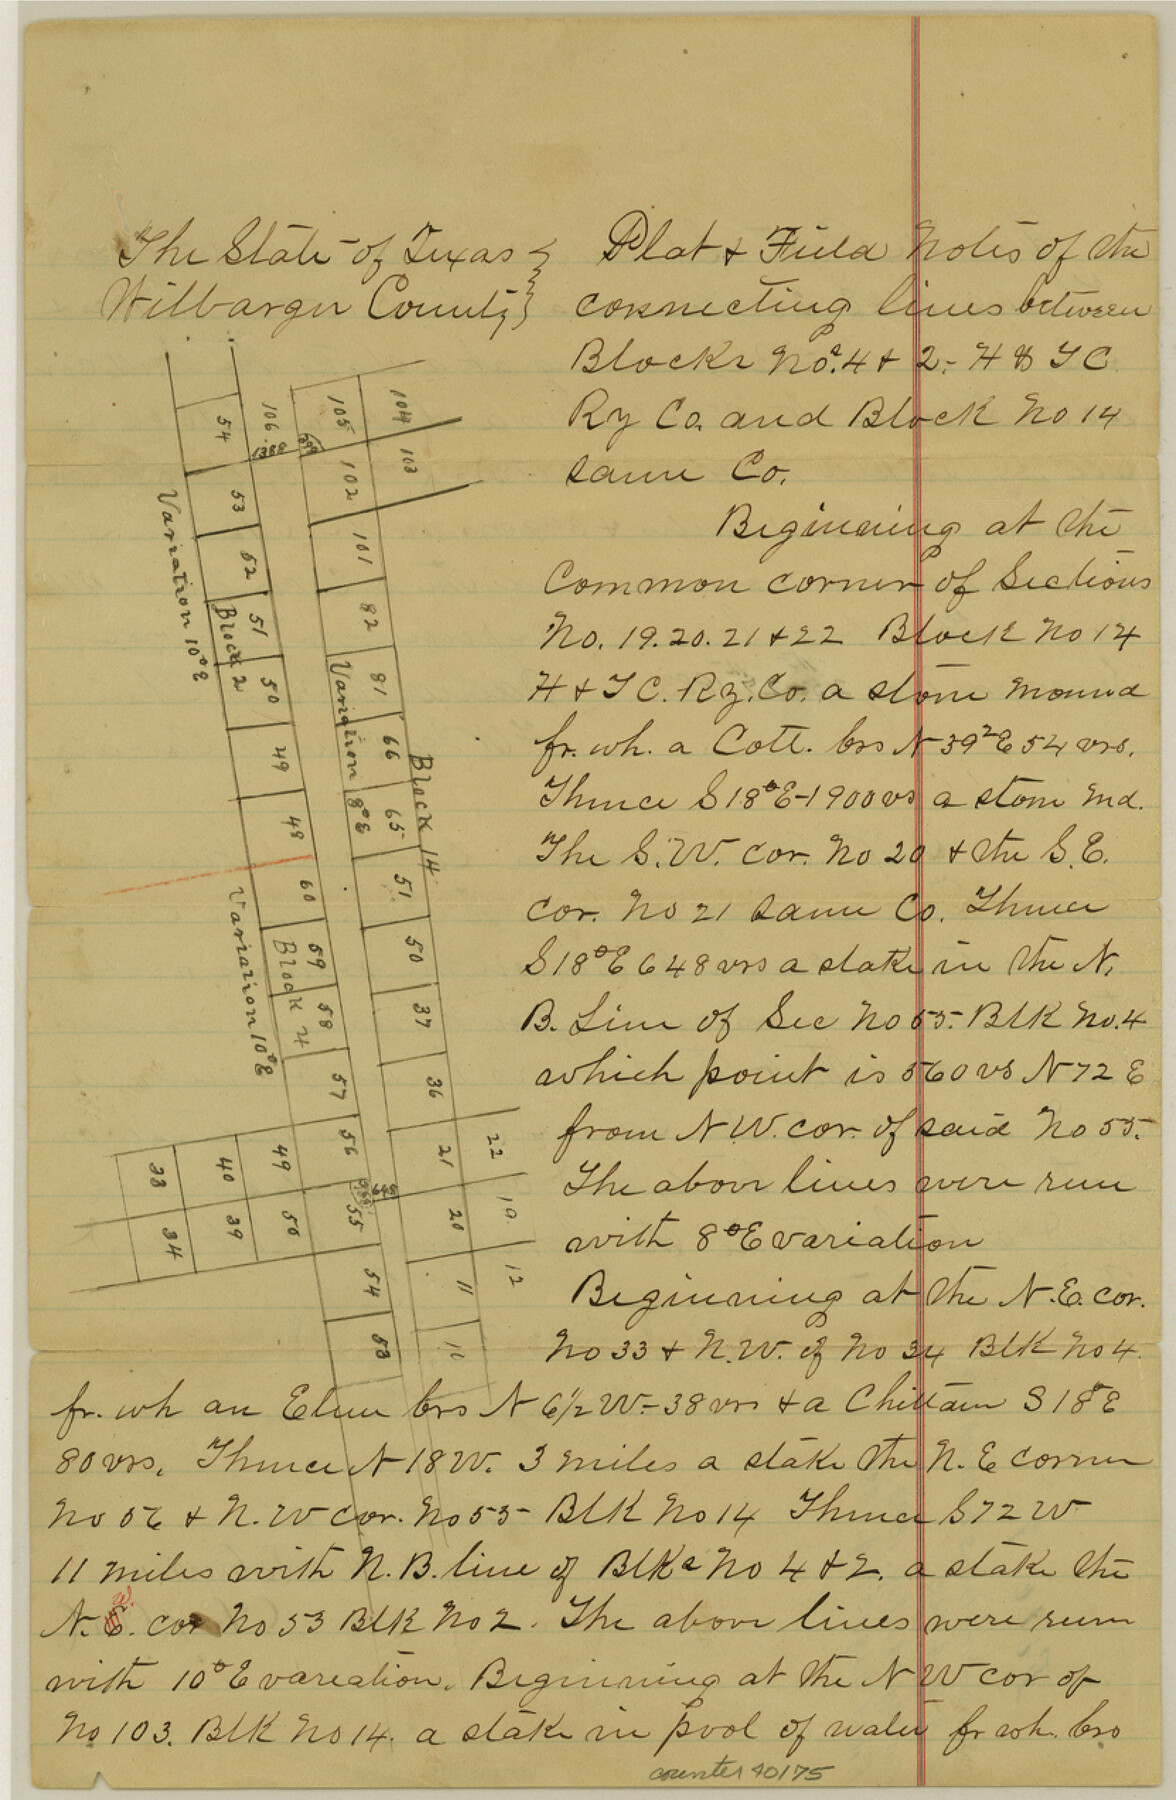 The State of Texas }
Wilbarger County }
Plat & Field Notes of the
connecting lines between
Blocks Nos. 4 & 2 - H & T C
Ry Co. and Block No 14
same Co.
Begining at the
Common corner of Sections
No. 19. 20. 21 & 22 Block No 14
H & T C. Ry. Co. a stone mound
fr. wh. a Cott. brs N 39° E 54 vrs.
Thence S 18° E - 1900 vs a stone Md.
The S. W. cor. No 20 & the S. E.
cor. No 21 same Co. Thence
S 18° E 648 vrs a stake in the N.
B. Line of Sec No 55. Blk No. 4
which point is 560 vs N 72 E
from N. W. cor. of said No 55.
The above lines were run
with 8° E variation
Beginning at the N. E. cor.
No 33 & N. W. of No 34 Blk No 4.
fr. wh an Elm brs N 6 1/2 W - 38 vrs & a Chittam S 18° E
80 vrs. Thence N 18 W. 3 miles a stake the N. E corner
No 56 & N. W cor. No 55 Blk No 14 Thence S 72 W
11 miles with N. B. line of Blks No 4 & 2. a stake the
N. W. cor No 53 Blk No 2. The above lines were run
with 10° E vareation. Beginning at the N W cor of
No 103. Blk No 14. a stake in pool of water fr wh. brs
counter 40175
104
105
106
54
1388
103
102
53
101
52
82
51
Block 2
50
81
Variation 10° E
Variation 8° E
66
49
65
Block 14
48
51
60
50
59
Block 4
58
37
Variation 10° E
57
36
56
22
21
49
40
33
55
19
20
50
39
34
54
12
11
53